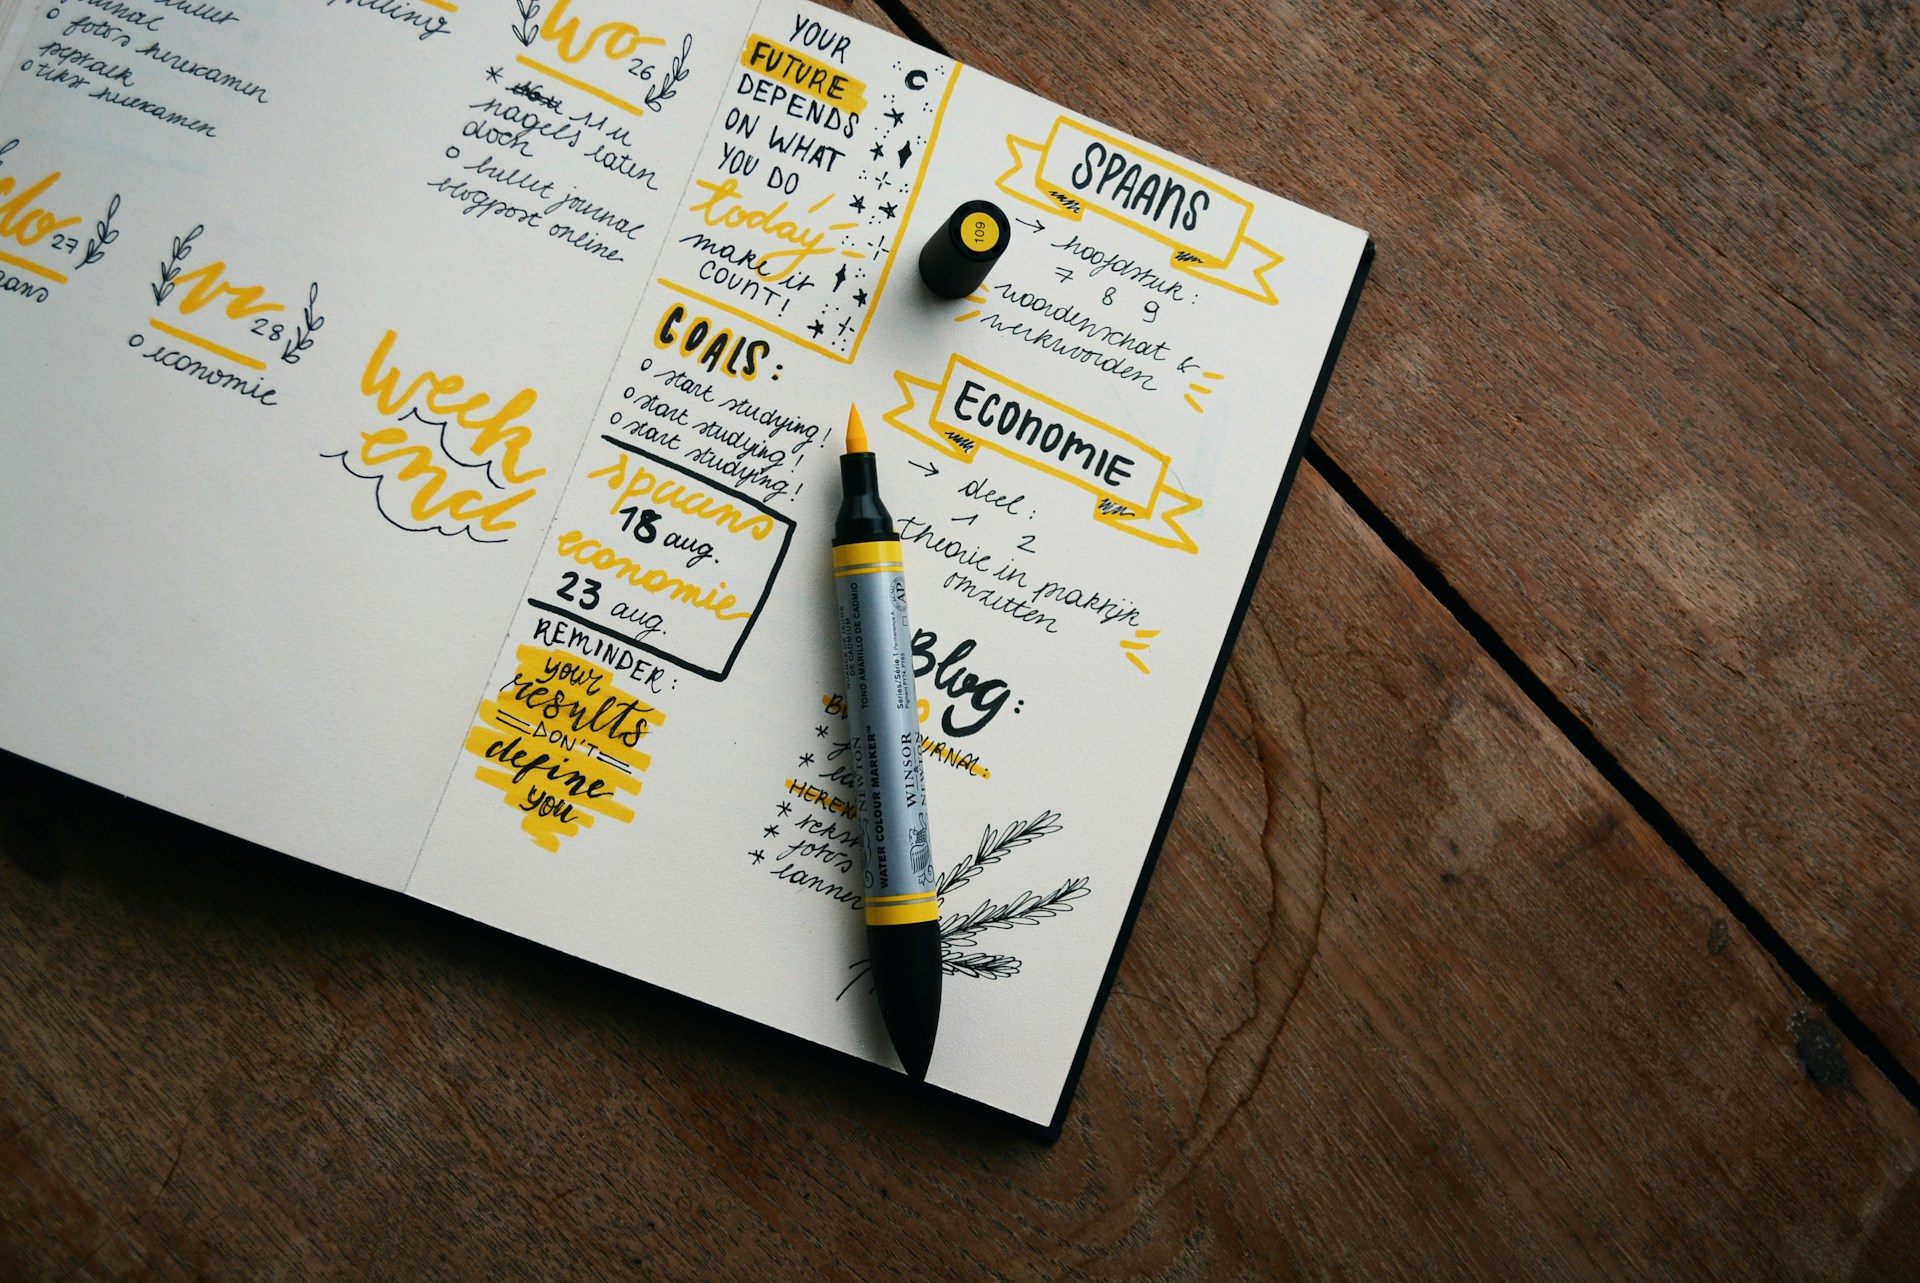 bullet
journal
o foto's herexamen
peptalk
o tekst herexamen
Wo
26
* 11 u
nagels laten
doen
o bullet journal
blogpost online
do
27
vr
28
o economie
Week
end
YOUR
FUTURE
DEPENDS
ON WHAT
YOU DO
today
make it
COUNT!
GOALS:
o start studying!
o start studying!
o start studying!
spaans
18 aug.
economie
23 aug.
REMINDER:
your
results
DON'T
define
you
SPAANS
→ hoofdstuk:
7 8 9
woordenschat &
werkwoorden
ECONOMIE
→ deel:
1 2
theorie in praktijk
omzetten
Blog:
URNAL:
HEREX
* tekst
* foto's
109
DE CADMIUM
TONO AMARILLO DE CADMIO
Series/Série 1
AP
WATER COLOUR MARKER™
WINSOR
&
NEWTON